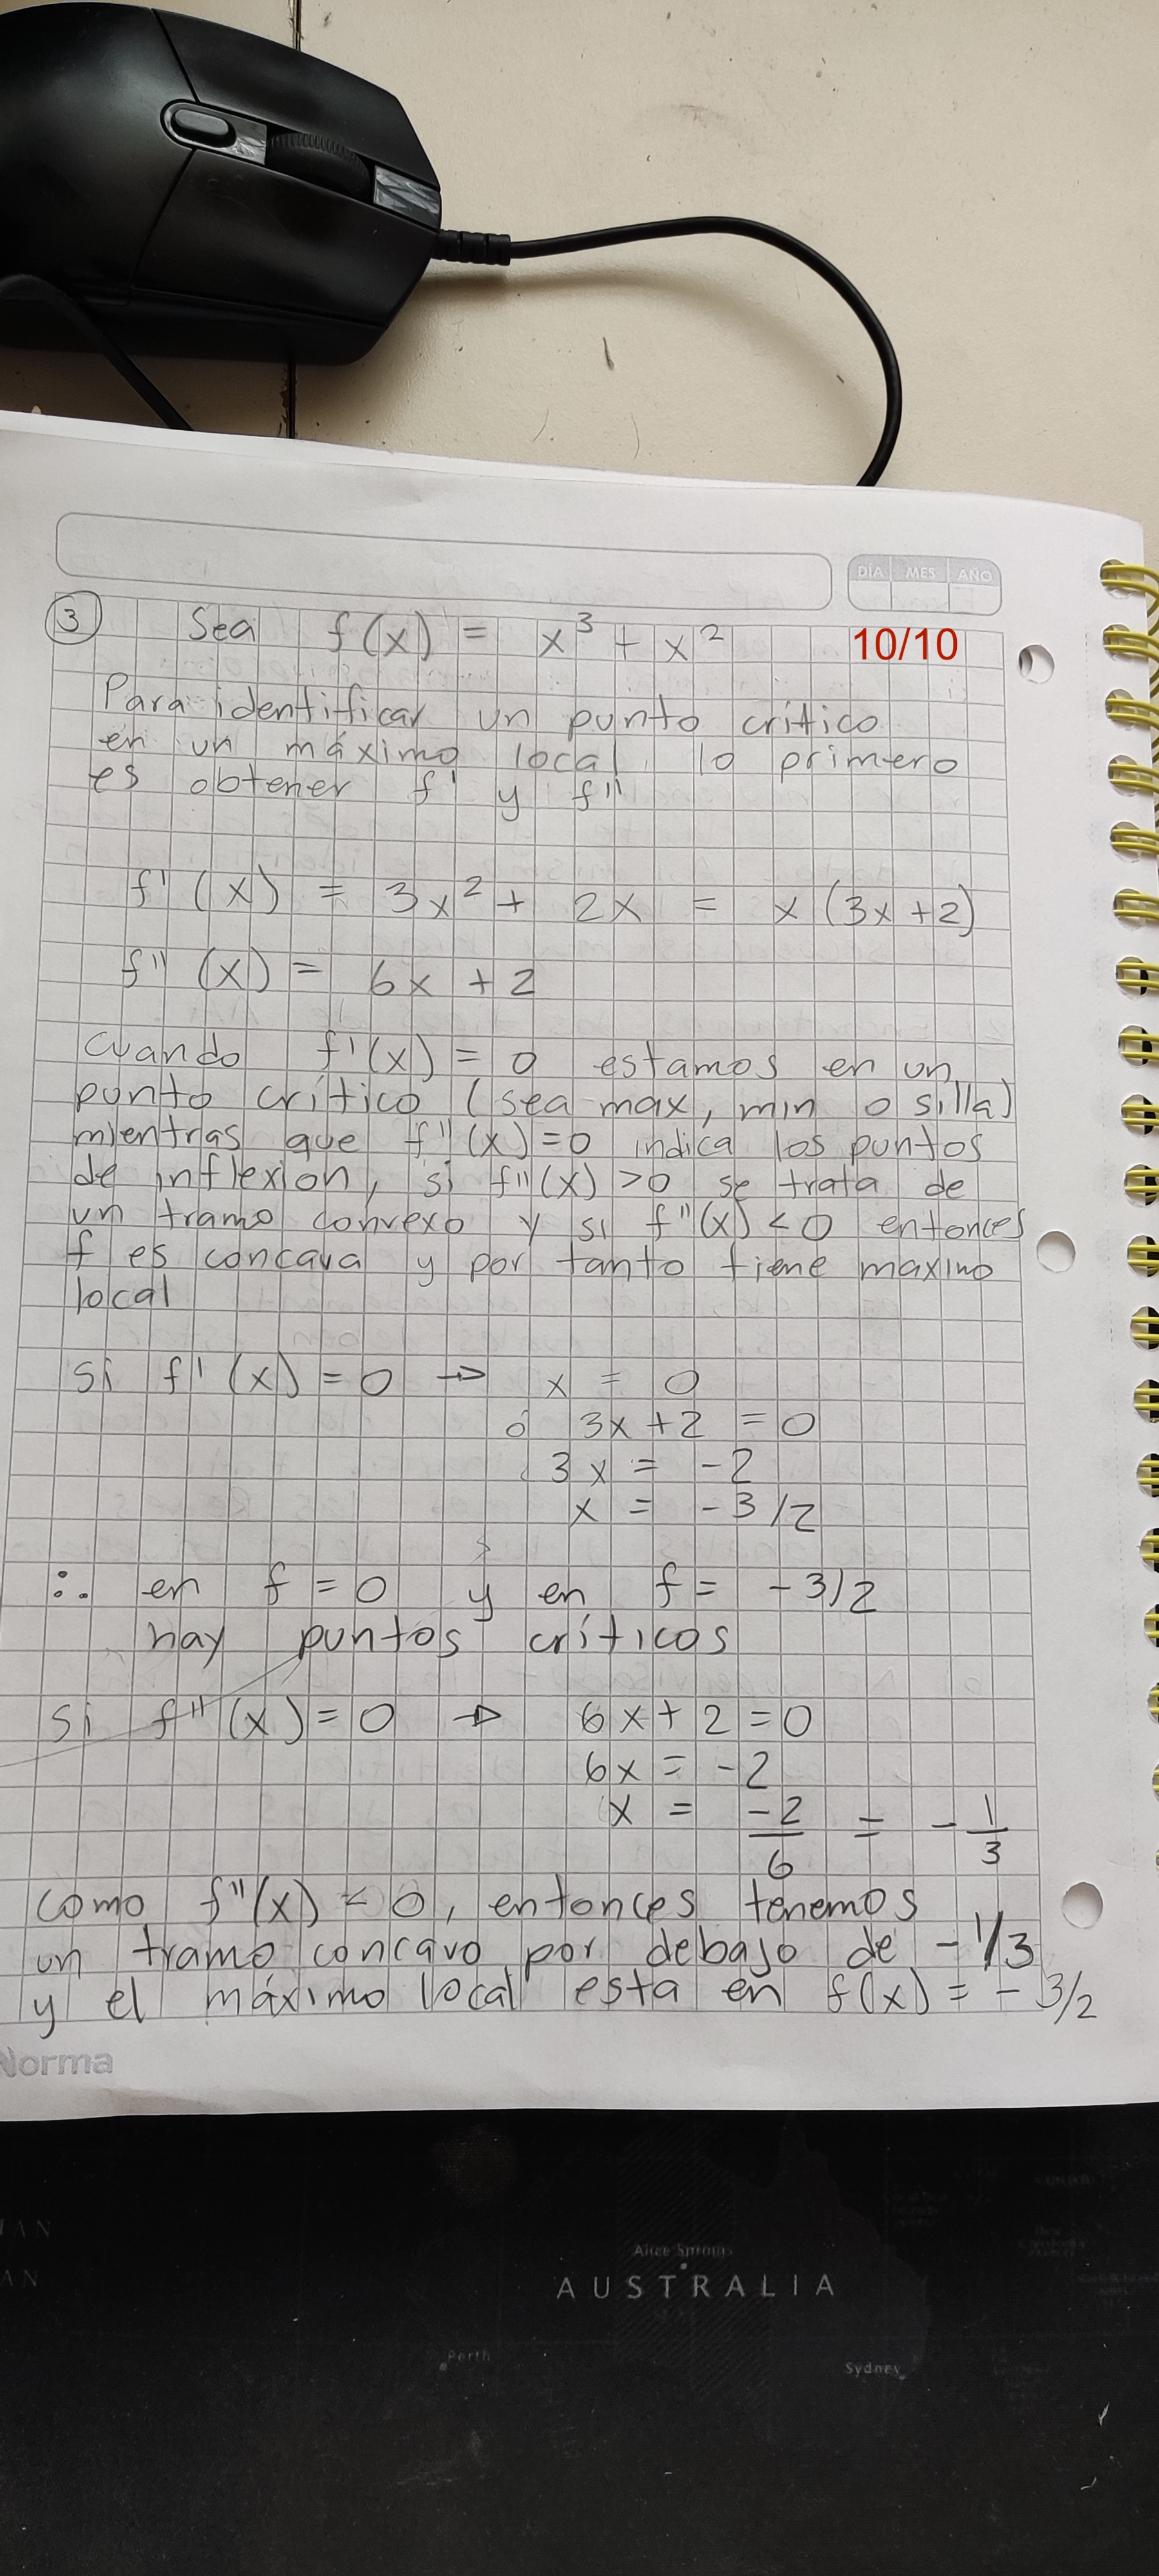 DÍA MES AÑO
3 Sea f(x) = x³ + x² 10/10
Para identificar un punto crítico
en un máximo local, lo primero
es obtener f' y f"
f'(x) = 3x² + 2x = x(3x+2)
f"(x) = 6x + 2
Cuando f'(x) = 0 estamos en un
punto crítico (sea max, min o silla)
mientras que f"(x)=0 indica los puntos
de inflexion, si f"(x) >0 se trata de
un tramo convexo y si f"(x) < 0 entonces
f es concava y por tanto tiene maximo
local
Si f'(x) = 0 → x = 0
ó 3x+2 = 0
3x = -2
x = -3/2
∴ en f = 0 y en f = -3/2
hay puntos críticos
Si f"(x) = 0 → 6x+2=0
6x = -2
x = -2/6 = -1/3
como f"(x) < 0, entonces tenemos
un tramo concavo por debajo de -1/3
y el máximo local esta en f(x) = -3/2
Norma
Alice Springs
AUSTRALIA
Perth
Sydney